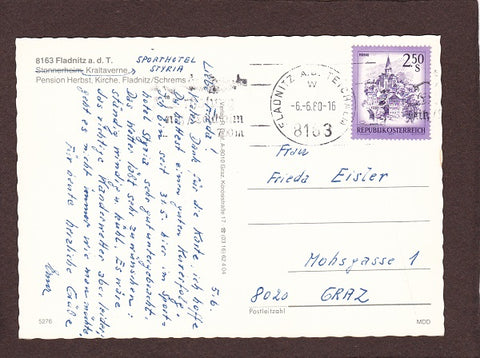 8163 Fladnitz a. d. T.
Stonnerheim, Kraltaverne → SPORTHOTEL
STYRIA
Pension Herbst, Kirche, Fladnitz/Schrems
5.6.
Liebe Frieda!
Vielen Dank für die Karte, ich hoffe
Du hattest einen guten Kurerfolg.
Ich bin seit 31.5. hier im Sport-
hotel Styria sehr gut untergebracht.
Das Wetter läßt sehr zu wünschen:
ständig windig u. kühl. Es wäre
das richtige Wanderwetter aber leider
geht es nicht immer wie man möchte,
Für heute herzliche Grüße
FLADNITZ A.D. TEICHALM
W
-6.-6.80-16
8163
2.50
S
REPUBLIK ÖSTERREICH
Frau
Frieda Eisler
Mohsgasse 1
8020 GRAZ
Postleitzahl
5276
MDD